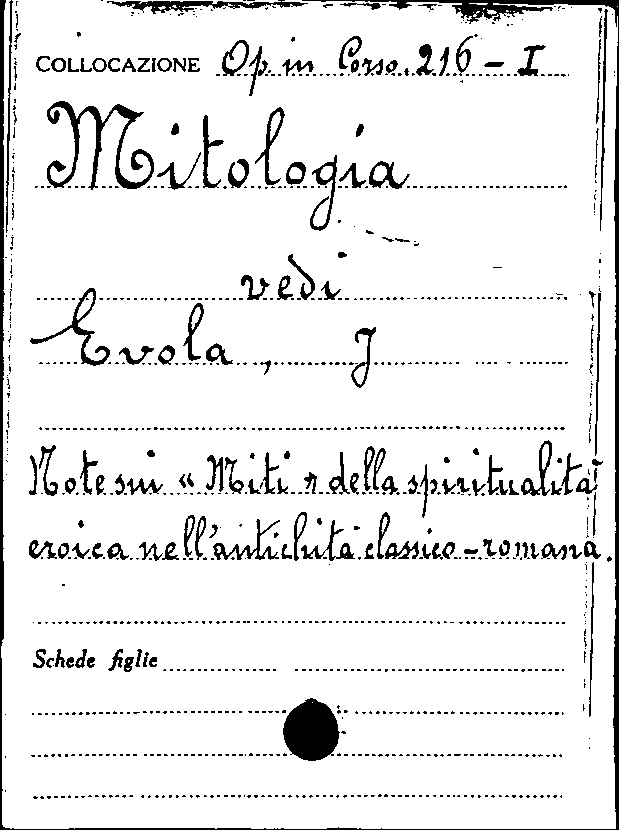 COLLOCAZIONE Op. in Corso. 216 - I
Mitologia
vedi
Evola, J
Note sui « Miti » della spiritualità
eroica nell'antichità classico-romana.
Schede figlie